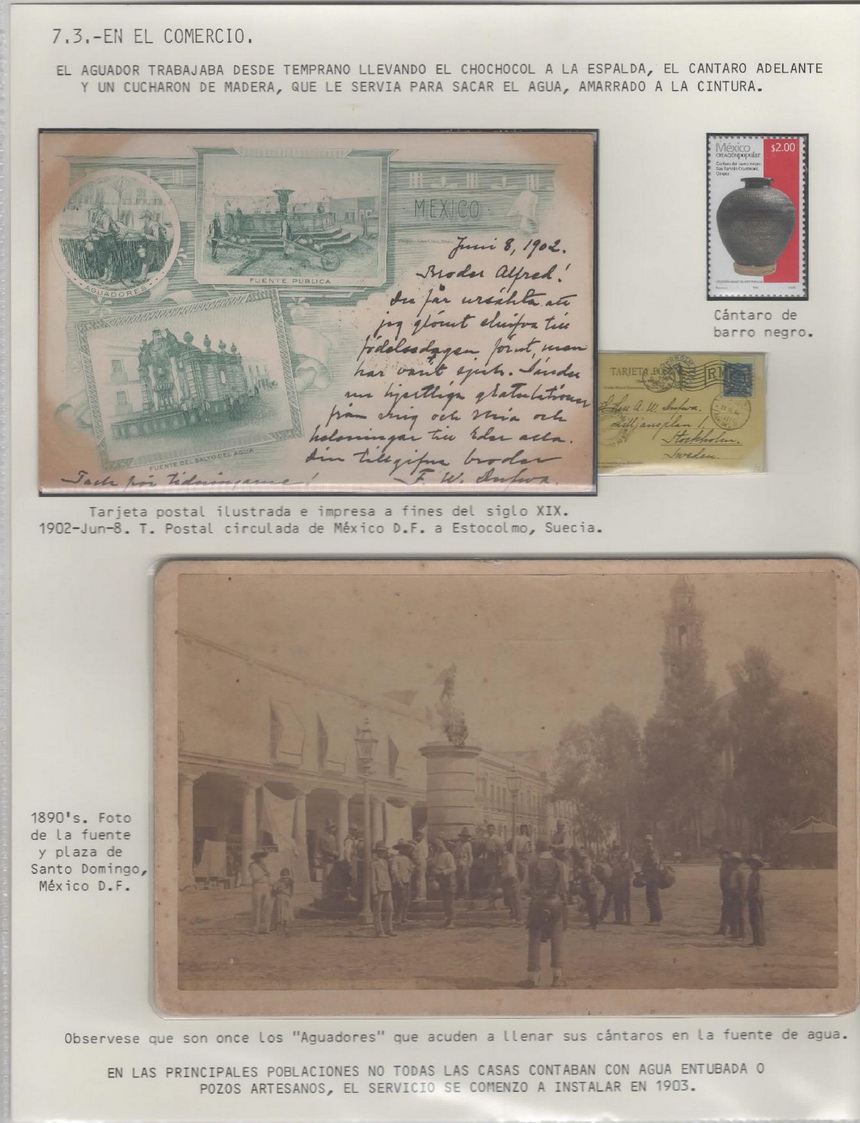 7.3.-EN EL COMERCIO.
EL AGUADOR TRABAJABA DESDE TEMPRANO LLEVANDO EL CHOCHOCOL A LA ESPALDA, EL CANTARO ADELANTE
Y UN CUCHARON DE MADERA, QUE LE SERVIA PARA SACAR EL AGUA, AMARRADO A LA CINTURA.
AGUADORES
FUENTE PUBLICA
MEXICO
FUENTE DEL SALTO DEL AGUA
Juni 8, 1902.
Broder Alfred!
Du får ursäkta att
jag glömt skrifva till
födelsedagen förut, men
har varit sjuk. Sänder
nu hjertliga gratulationer
från mig och Mia och
helsningar till Eder alla.
Din tillgifna broder
F. W.
Tack för tidningarne!
México
creación popular
$2.00
Cántaro de
barro negro.
TARJETA
A. W.
Lilljansplan 1
Stockholm.
Sweden.
Tarjeta postal ilustrada e impresa a fines del siglo XIX.
1902-Jun-8. T. Postal circulada de México D.F. a Estocolmo, Suecia.
1890's. Foto
de la fuente
y plaza de
Santo Domingo,
México D.F.
Observese que son once los "Aguadores" que acuden a llenar sus cántaros en la fuente de agua.
EN LAS PRINCIPALES POBLACIONES NO TODAS LAS CASAS CONTABAN CON AGUA ENTUBADA O
POZOS ARTESANOS, EL SERVICIO SE COMENZO A INSTALAR EN 1903.